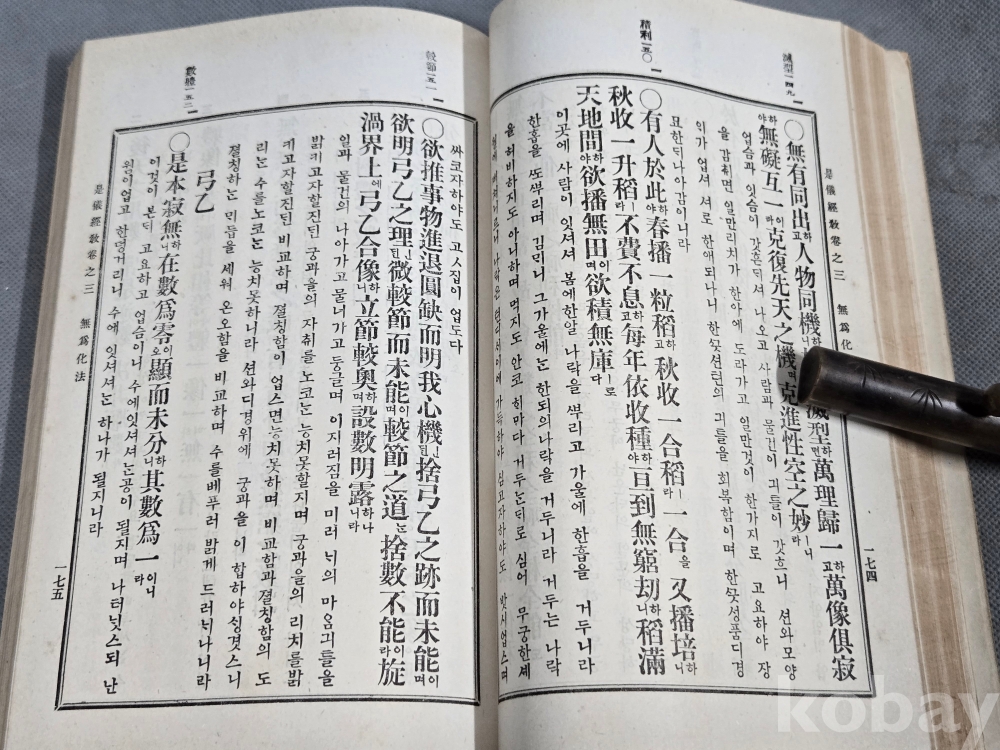 是儀經敎卷之三 無爲化
一七四
一四九
○無有同出하고人物同機하 型하면萬理歸一하고萬像俱寂
하야無礙互一이라克復先天之機며克進性空之妙ㅣ니라
업슴과잇슴이 갓흔듸셔 나오고 사람과 물건이 긔틀이 갓흐니 션와모양
을 감취면 일만리치가 한아에 도라가고 일만것이 한가지로 고요하야 장
익가 업셔 셔로 한애되나니 한삿션텬의 긔틀을 회복함이며 한삿셩품디경
묘한듸나아감이니라
積利一五〇
○有人於此하야春播一粒稻하고秋收一合稻라一合을又播培하니
秋收一升稻라不費不息하고每年依收種하야亘到無窮劫하니稻滿
天地間하야欲播無田이며欲積無庫ㅣ로다
이곳에 사람이 잇셔셔 봄에한알 나락을 뿌리고 가울에 한흡을 거두니라
한흡을 또뿌리며 김믹니 그가울에는 한되의나락을 거두니라 거두는 나락
을 허비하지도 아니하며 먹지도 안코 히마다 거두는듸로 심어 무궁한세
싸코자하야도 고ㅅ집이 업도다
一五一
○欲推事物進退圓缺而明我心機인딘捨弓乙之跡而未能이며
欲明弓乙之理인딘微較節而未能이며較節之道는捨數不能이라旋
渦界上에弓乙合像하니立節較奧하며設數明露하나니라
일과 물건의 나아가고 물너가고둥글며 이지러짐을 미러 늬의 마음긔틀을
밝키고자할진딘 궁과을의 자취를 노코는 능치못할지며 궁과을의 리치를밝
키고자할진딘 비교하며 졀칭함이 업스면능치못하며 비교함과졀칭함의 도
리는 수를노코는 능치못하니라 션와디경위에 궁과을 이 합하야싱겻스니
졀칭하는 믹듭을 셰워 온오함을 비교하며 수를베푸러 밝게 드러늬나니라
弓乙
數標一五二
○是本寂無하니在數爲零이오顯而未分하니其數爲一이니라
이것이 본딘 고요하고 업슴이니 수에잇셔셔는공이 될지며 나터닛스되 난
원이업고 한덩거리니 수에 잇셔셔는 하나가 될지니라
是儀經敎卷之三 無爲化法
一七五
kobay